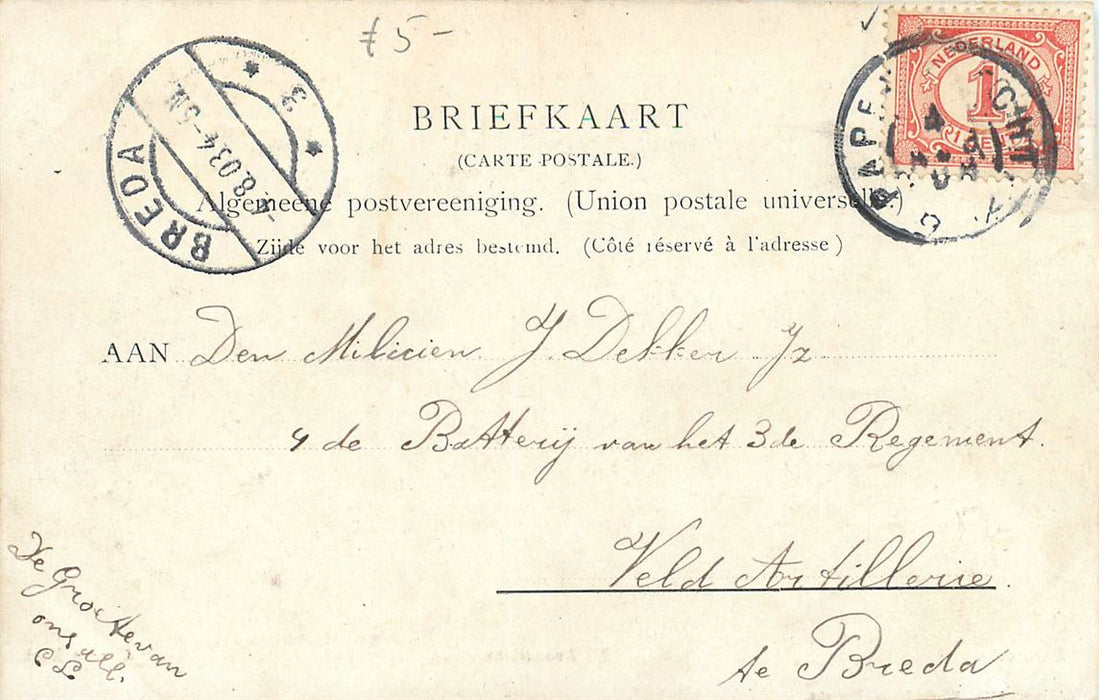 ƒ5-
BRIEFKAART
(CARTE POSTALE.)
Algemeene postvereeniging. (Union postale universelle.)
Zijde voor het adres bestemd. (Côté réservé à l'adresse)
BREDA
4.8.03 4-5N
3
NEDERLAND
1
1 CENT
PAPENDRECHT
AAN Den Milicien J. Dekker Jz
4 de Batterij van het 3de Regement.
Veld Artillerie.
te Breda
De Groete van
ons all.
CL